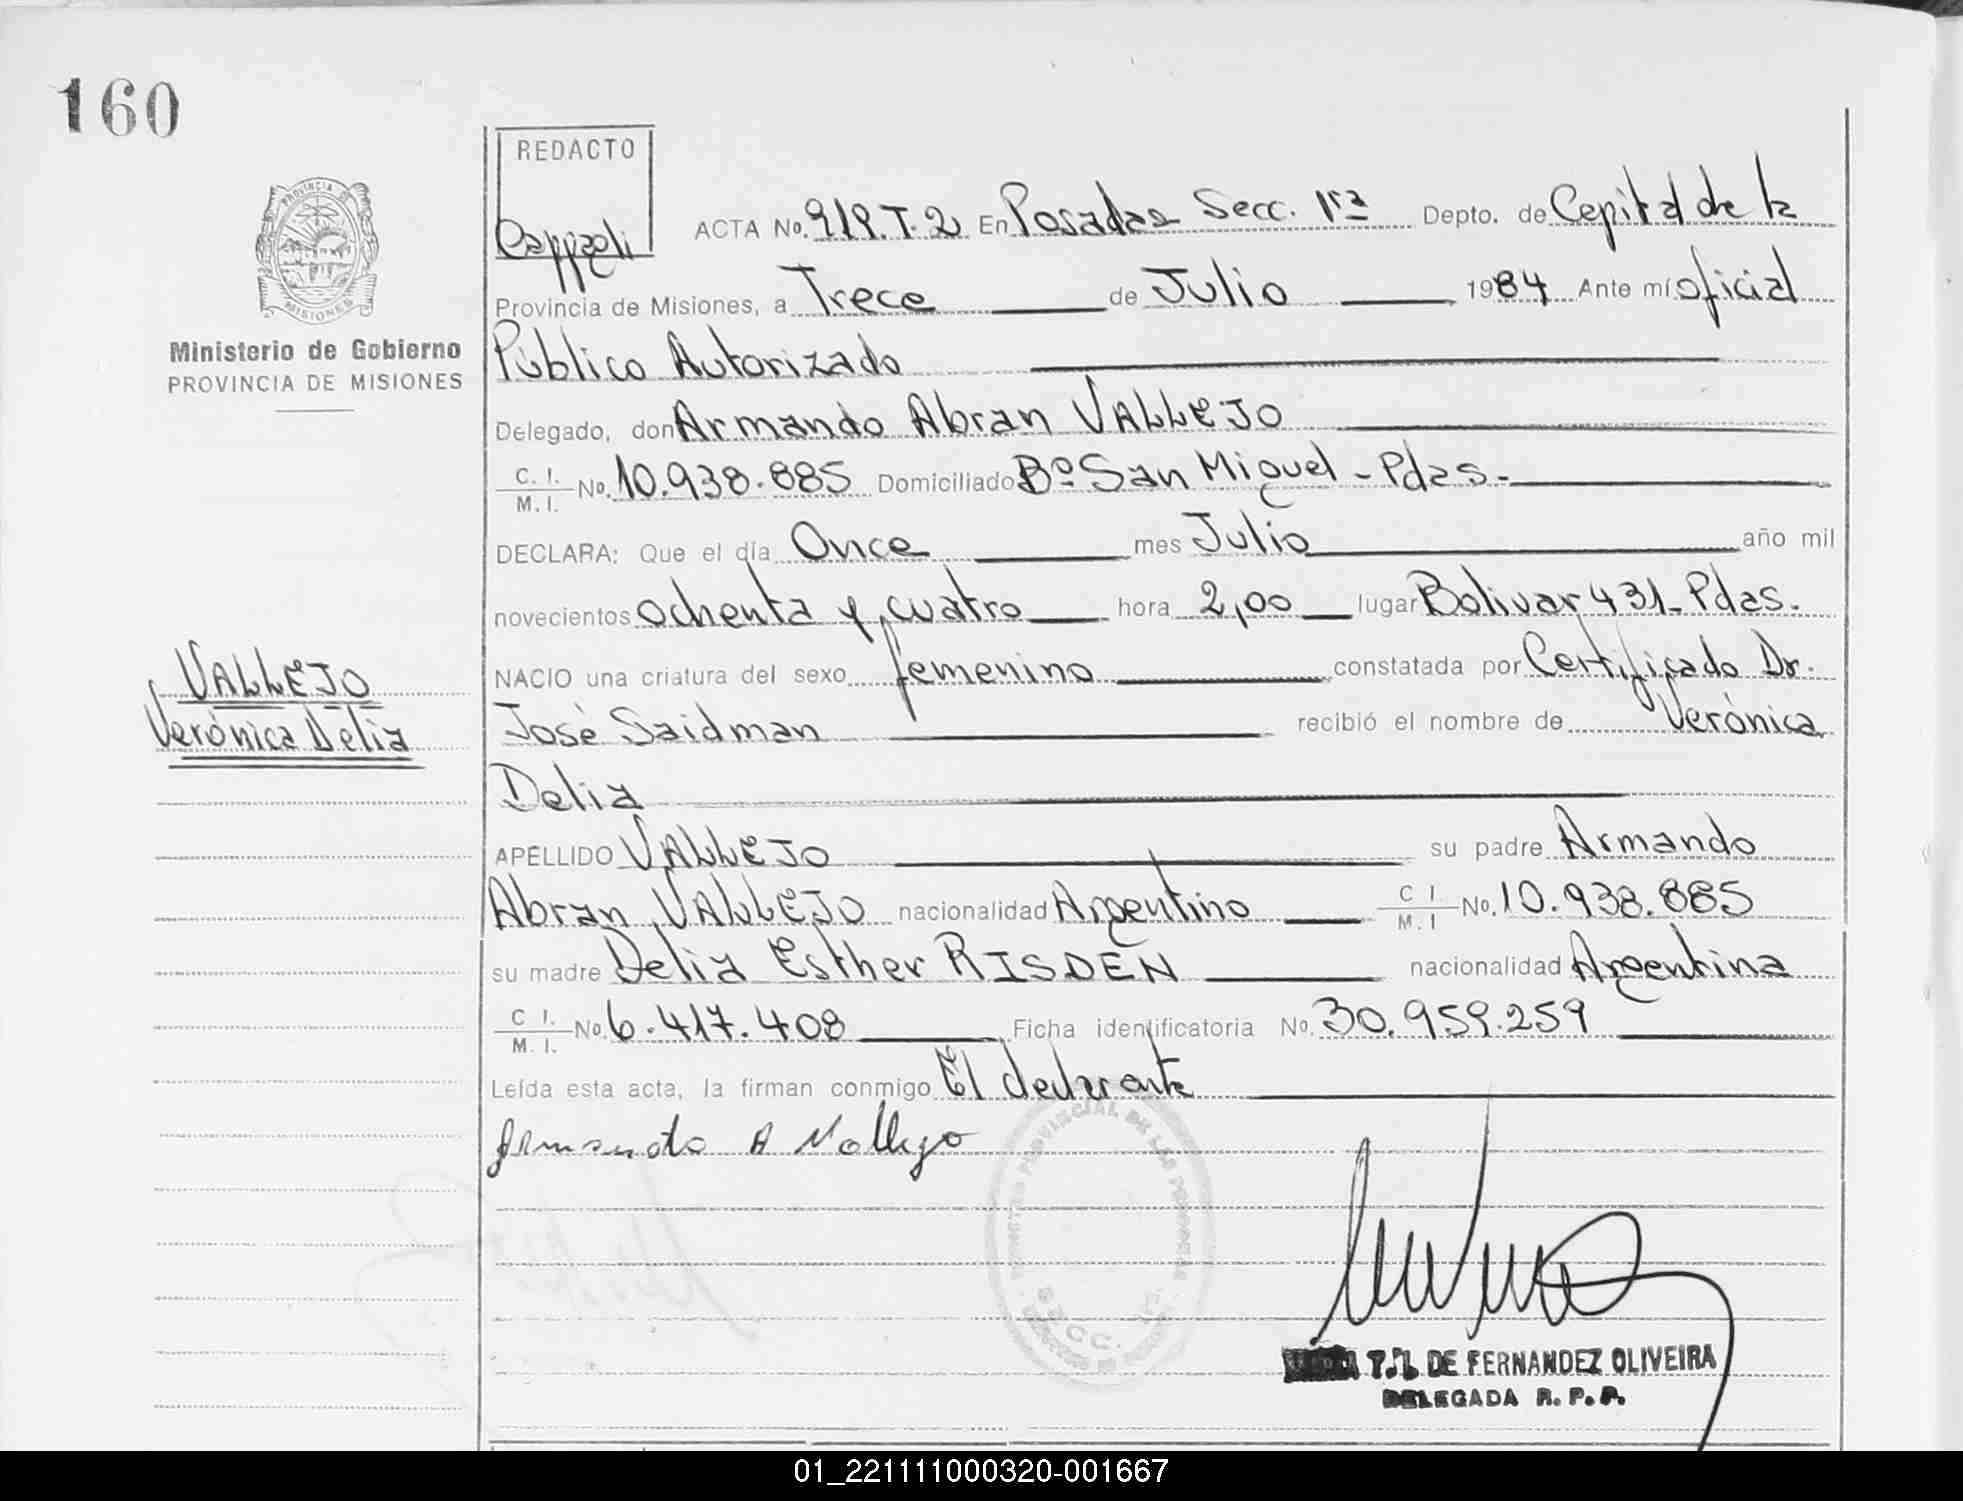 160
REDACTO
PROVINCIA DE
MISIONES
Ministerio de Gobierno
PROVINCIA DE MISIONES
ACTA No. 919.T.2 En Posadas Secc. 1ra Depto. de Capital de la
Provincia de Misiones, a Trece de Julio 1984 Ante mí oficial
Público Autorizado
Delegado, don Armando Abran VALLEJO
C. I.
M. I. No. 10.938.885 Domiciliado Bº San Miguel - Pdas.-
DECLARA: Que el día Once mes Julio año mil
novecientos ochenta y cuatro hora 2,00 lugar Bolivar 431- Pdas.
NACIO una criatura del sexo femenino constatada por Certificado Dr.
José Saidman recibió el nombre de Verónica
Delia
APELLIDO VALLEJO su padre Armando
Abran VALLEJO nacionalidad Argentino C I. M. I No. 10.938.885
su madre Delia Esther RISDEN nacionalidad Argentina
C I. M. I. No. 6.417.408 Ficha identificatoria No. 30.959.259
Leída esta acta, la firman conmigo El declarante
Armando A Vallejo
VALLEJO
Verónica Delia
T. L. DE FERNANDEZ OLIVEIRA
DELEGADA R. P. P.
01_221111000320-001667